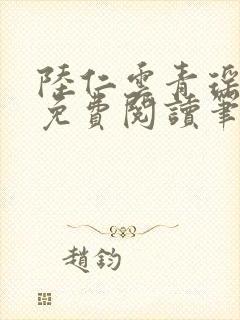 陸仁雲青瑶
免費閱讀筆
趙鈞